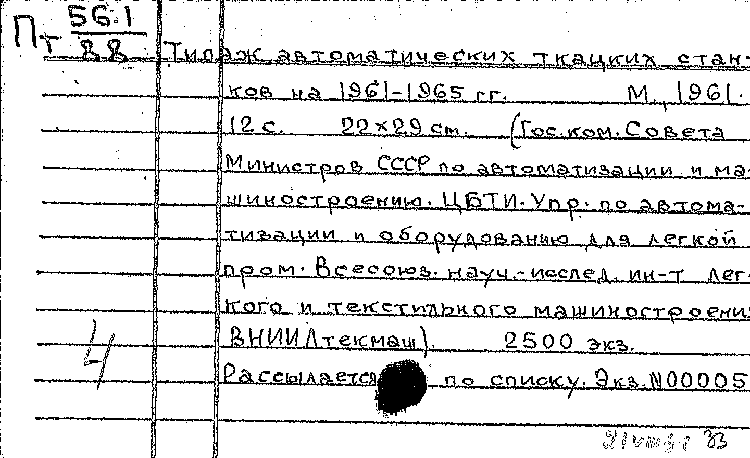 Пт 56.1
88 Типаж автоматических ткацких стан-
ков на 1961-1965 гг. М., 1961.
12 с. 22×29 см. (Гос. ком. Совета
Министров СССР по автоматизации и ма-
шиностроению. ЦБТИ. Упр. по автома-
тизации и оборудованию для легкой
пром. Всесоюз. науч.-исслед. ин-т лег-
кого и текстильного машиностроения
ВНИИЛтекмаш). 2500 экз.
4 Рассылается по списку. Экз. N00005